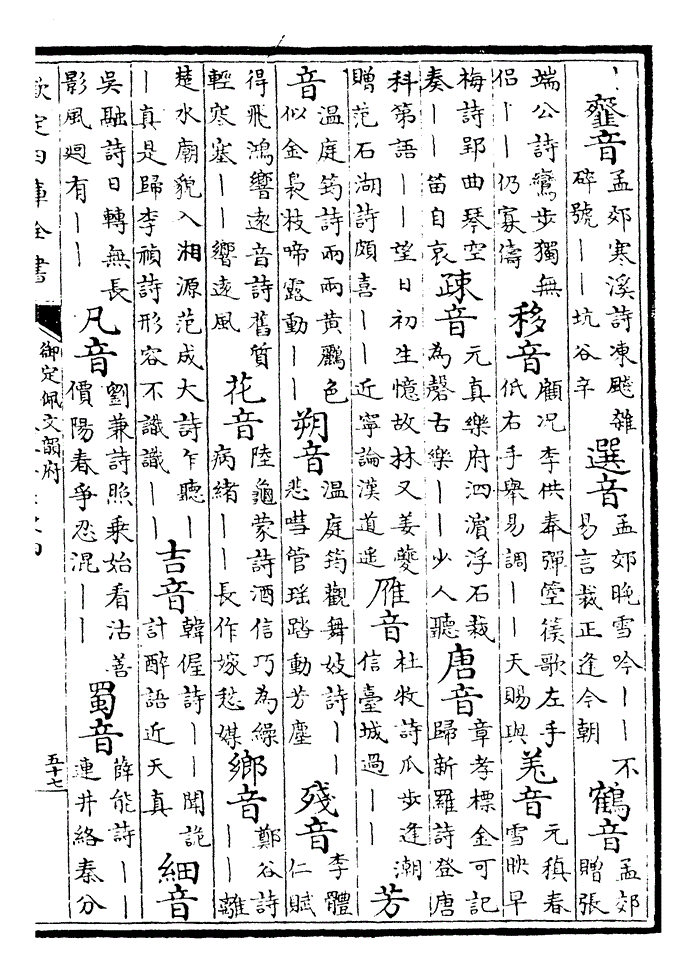 丨齏音孟郊寒溪詩凍飈雜碎號丨丨坑谷辛選音孟郊晚雪吟丨丨不易言裁正逢今朝鶴音孟郊贈張
端公詩鸞步獨無侶丨丨仍寡儔移音顧况李供奉彈箜篌歌左手低右手舉易調丨丨天賜與羗音元稹春雪映早
梅詩郢曲琴空奏丨丨笛自哀疎音元真樂府泗濵浮石裁為磬古樂丨丨少人聽唐音章孝標金可記歸新羅詩登唐
科第語丨丨望日初生憶故林又姜夔贈范石湖詩頗喜丨丨近寧論漢道遥雁音杜牧詩瓜步逢潮信臺城過丨丨芳
音温庭筠詩雨雨黄鸝色似金裊枝啼露動丨丨朔音温庭筠觀舞妓詩丨丨悲嘒管瑶踏動芳塵殘音李體仁賦
得飛鴻響逺音詩舊質輕寒塞丨丨響逺風花音陸龜蒙詩酒信巧為繰病緒丨丨長作嫁愁媒鄉音鄭谷詩丨丨離
楚水廟貌入湘源范成大詩乍聽丨丨真是歸李禎詩形容不識識丨丨吉音韓偓詩丨丨聞詭計醉語近天真細音
吳融詩日轉無長影風廻有丨丨凡音劉兼詩照乗始看沽善價陽春爭忍混丨丨蜀音薛能詩丨丨連井絡秦分
欽定四庫全書
御定佩文韻府
五十七